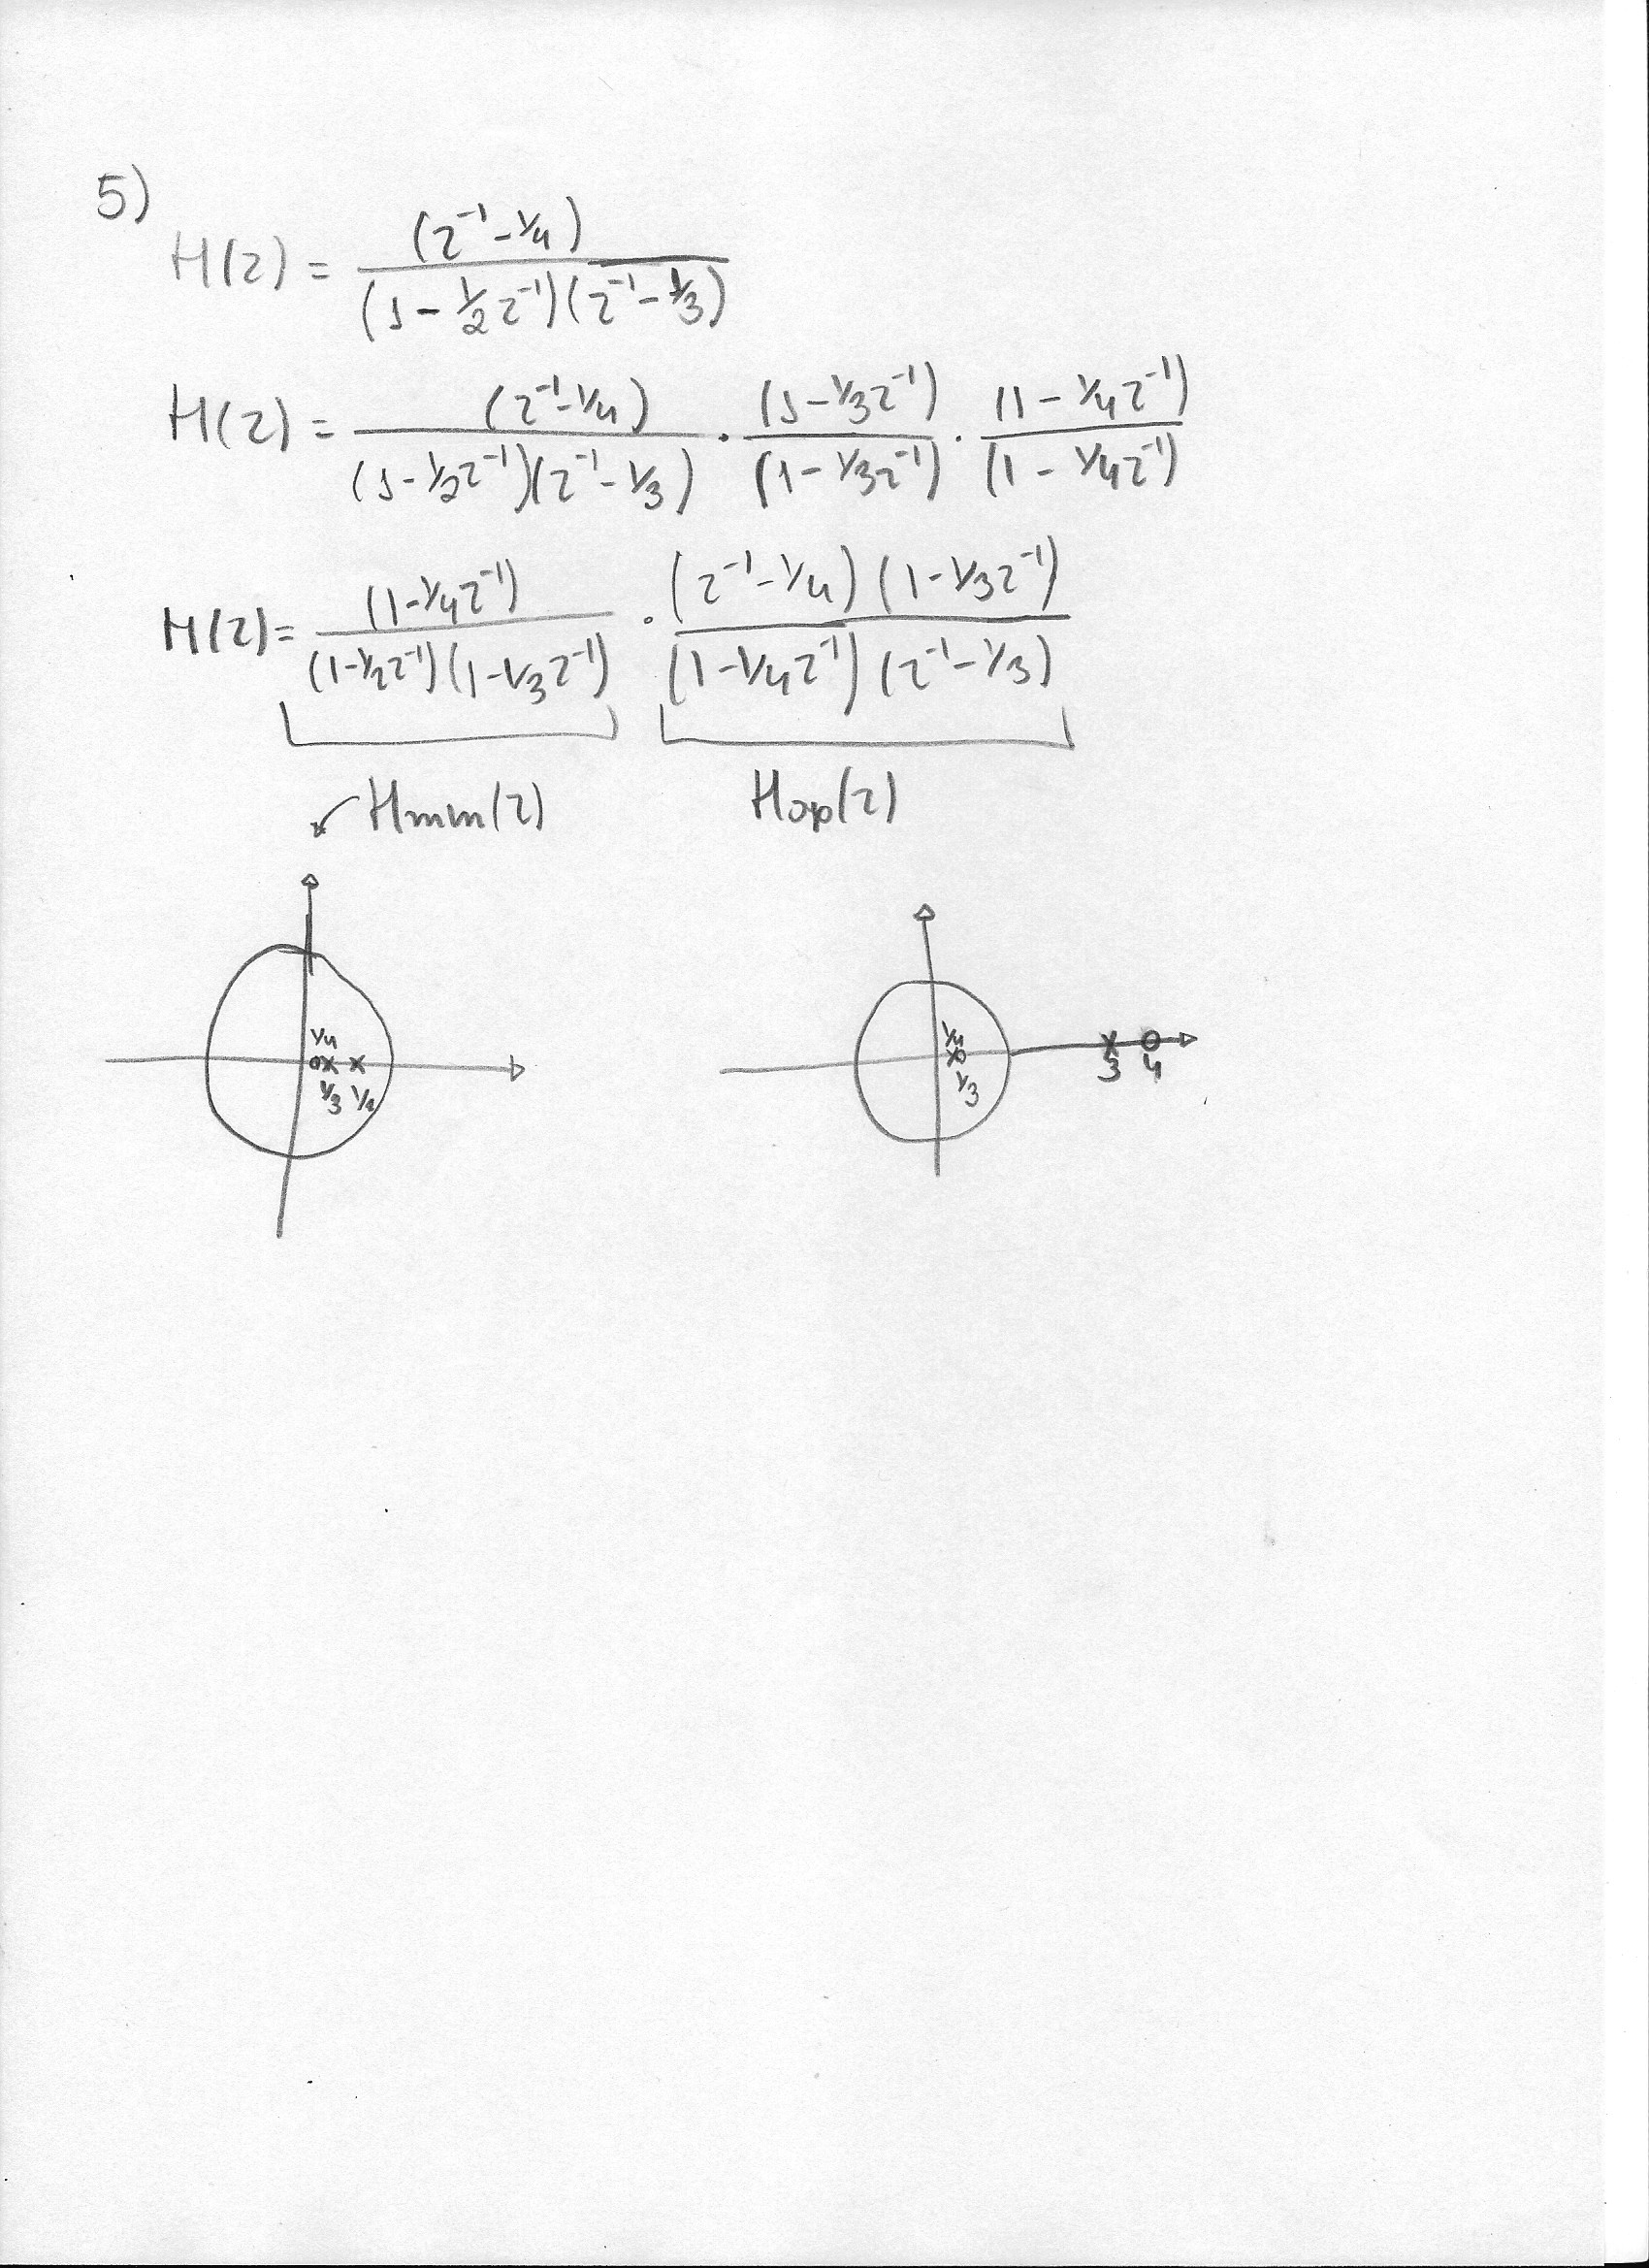 5)
H(z) = (z⁻¹ - 1/4) / (1 - 1/2 z⁻¹)(z⁻¹ - 1/3)
H(z) = (z⁻¹ - 1/4) / (1 - 1/2 z⁻¹)(z⁻¹ - 1/3) · (1 - 1/3 z⁻¹) / (1 - 1/3 z⁻¹) · (1 - 1/4 z⁻¹) / (1 - 1/4 z⁻¹)
H(z) = (1 - 1/4 z⁻¹) / (1 - 1/2 z⁻¹)(1 - 1/3 z⁻¹) · (z⁻¹ - 1/4)(1 - 1/3 z⁻¹) / (1 - 1/4 z⁻¹)(z⁻¹ - 1/3)
↙ Hmin(z) Hap(z)
1/4
1/3 1/2
1/4
1/3
3 4